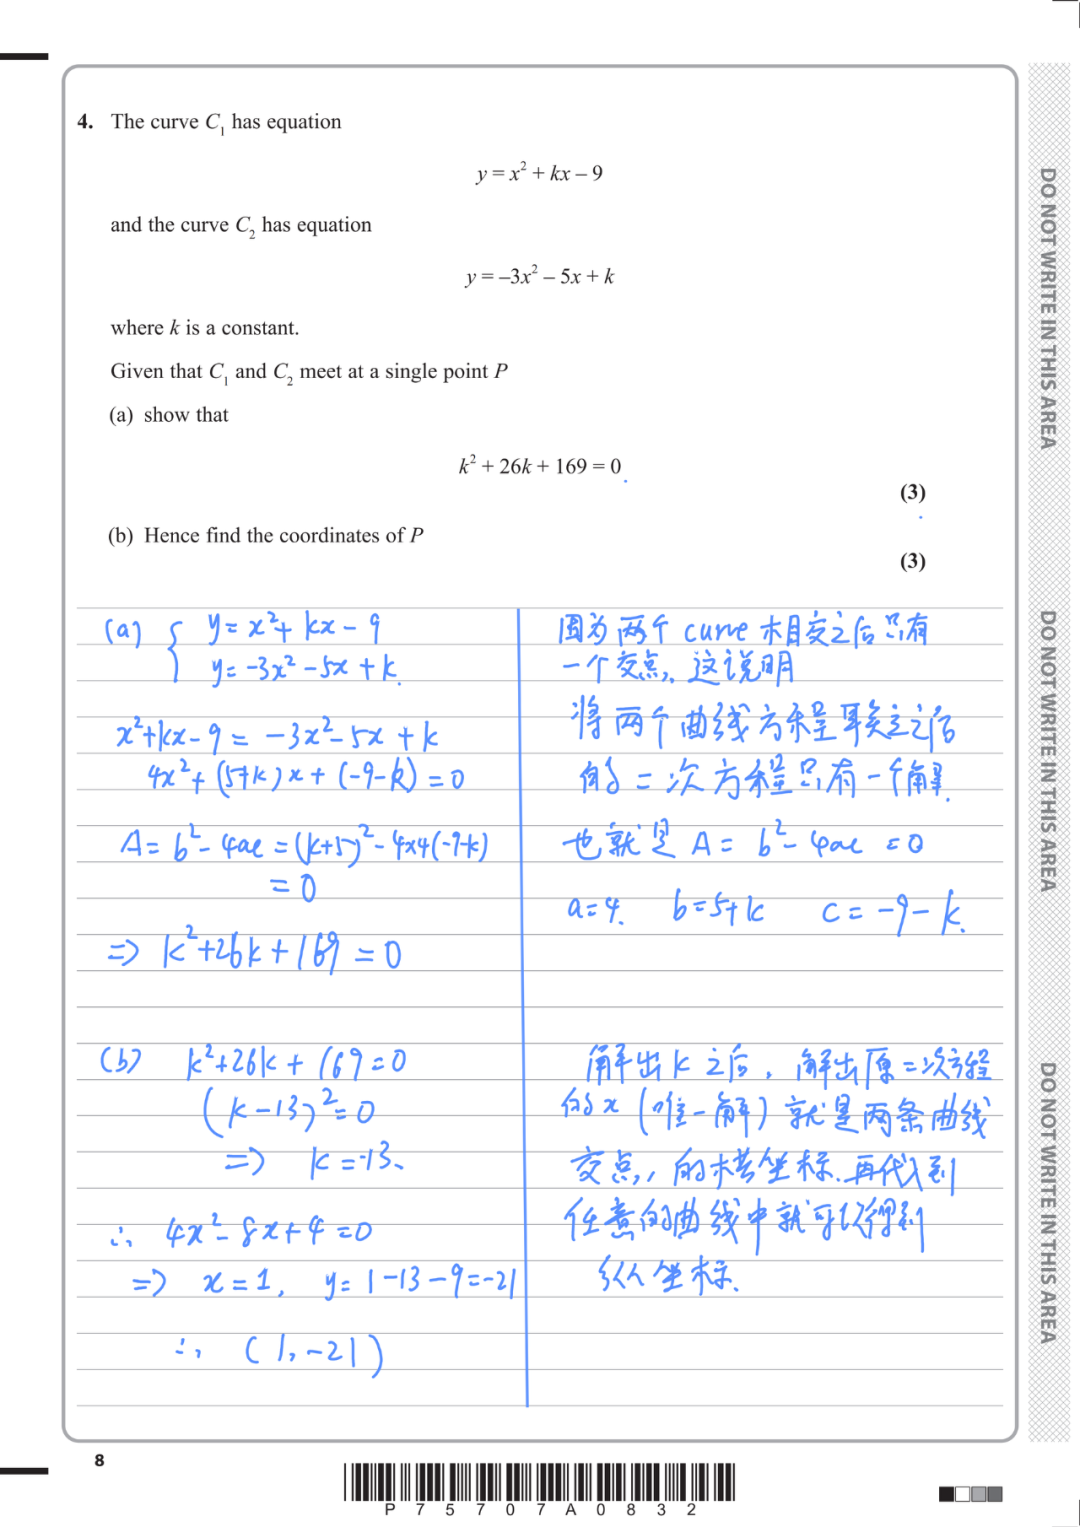 4. The curve C₁ has equation
y = x² + kx – 9
and the curve C₂ has equation
y = –3x² – 5x + k
where k is a constant.
Given that C₁ and C₂ meet at a single point P
(a) show that
k² + 26k + 169 = 0
(3)
(b) Hence find the coordinates of P
(3)
(a) { y = x² + kx - 9
y = -3x² - 5x + k.
x² + kx - 9 = -3x² - 5x + k
4x² + (5+k)x + (-9-k) = 0
Δ = b² - 4ac = (k+5)² - 4×4(-9-k)
= 0
⇒ k² + 26k + 169 = 0
因为两个 curve 相交之后只有
一个交点, 这说明
将两个曲线方程联立之后
的二次方程只有一个解.
也就是 Δ = b² - 4ac = 0
a=4. b=5+k c = -9-k.
(b) k² + 26k + 169 = 0
(k-13)² = 0
⇒ k = -13.
∴ 4x² - 8x + 4 = 0
⇒ x = 1, y = 1-13-9 = -21
∴, (1, -21)
解出 k 之后, 解出原二次方程
的 x (唯一解) 就是两条曲线
交点, 的横坐标. 再代入到
任意的曲线中就可以得到
纵坐标.
DO NOT WRITE IN THIS AREA
DO NOT WRITE IN THIS AREA
DO NOT WRITE IN THIS AREA
8
P 7 5 7 0 7 A 0 8 3 2